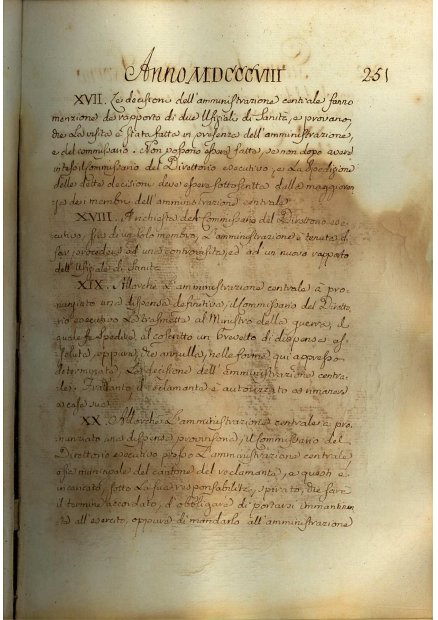 Anno MDCCCVIII 251
XVII. Le decisioni dell'amministrazione centrale fanno
menzione de rapporto di due Ufiziale di Sanità, e provano
che la visita è stata fatta in presenza dell'amministrazione,
e del commissario. Non possono essere fatte, se non dopo avere
inteso il Commissario del Direttorio esecutivo, e la spedizione
delle dette decisioni deve essere sottoscritta dalla maggioran
za dei membri dell'amministrazione centrale
XVIII. A richiesta del Commissario del Direttorio ese
cutivo, sia di un solo membro, l'amministrazione è tenuta di
far procedere ad una controvisita, ed ad un nuovo rapporto
dell'Ufiziale di Sanità
XIX. Allorchè l'amministrazione centrale à pro
nunziato una dispensa definitiva, il Commissario del Diretto
rio esecutivo la trasmette al Ministro della guerra, il
quale fa spedire al coscritto un brevetto di dispensa as
soluta, oppure, ed annulla, nelle forme qui appresso
determinate la decisione dell'amministrazione centra
le. Frattanto il reclamante è autorizzato a rimanere
a casa sua.
XX. Allorchè l'amministrazione centrale à pro
nunziato una dispensa provvisoria, il Commissario del
Direttorio esecutivo presso l'amministrazione centrale
municipale del cantone del reclamante, e questi è
incaricato, sotto la sua responsabilità, spirato, che sarà
il termine accordato, d'obbligare di portarsi immantinen
te all'esercito, oppure di mandarlo all'amministrazione